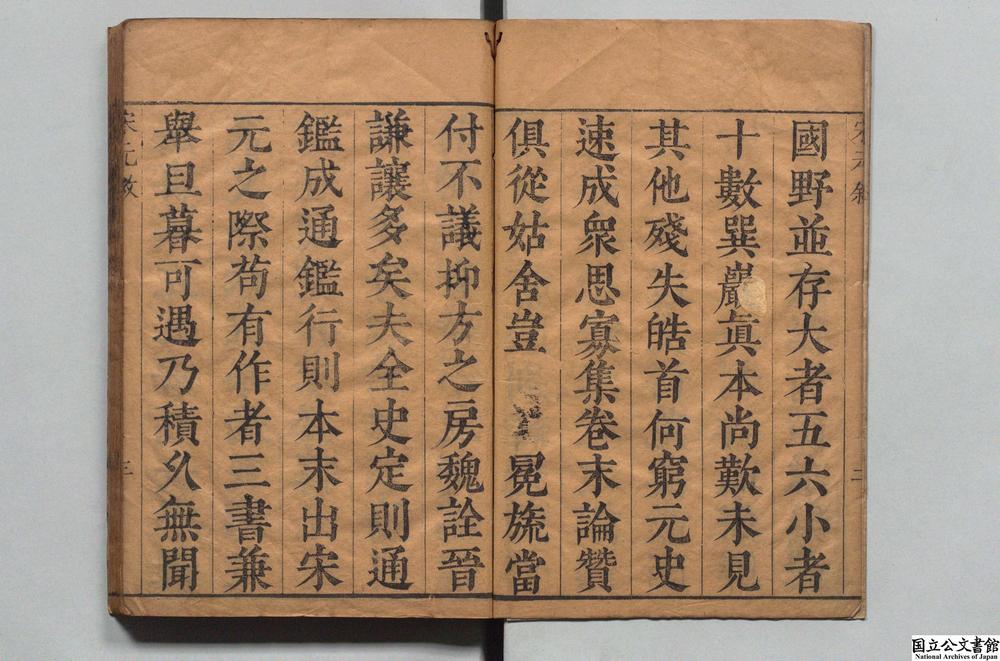 國野並存大者五六小者
十數巽巖真本尚歎未見
其他殘失皓首何窮元史
速成衆思寡集卷末論贊
俱從姑舍豈冕旒當
付不議抑方之房魏詮晉
謙讓多矣夫全史定則通
鑑成通鑑行則本末出宋
元之際苟有作者三書兼
舉旦暮可遇乃積久無聞
宋元敘
三
国立公文書館
National Archives of Japan